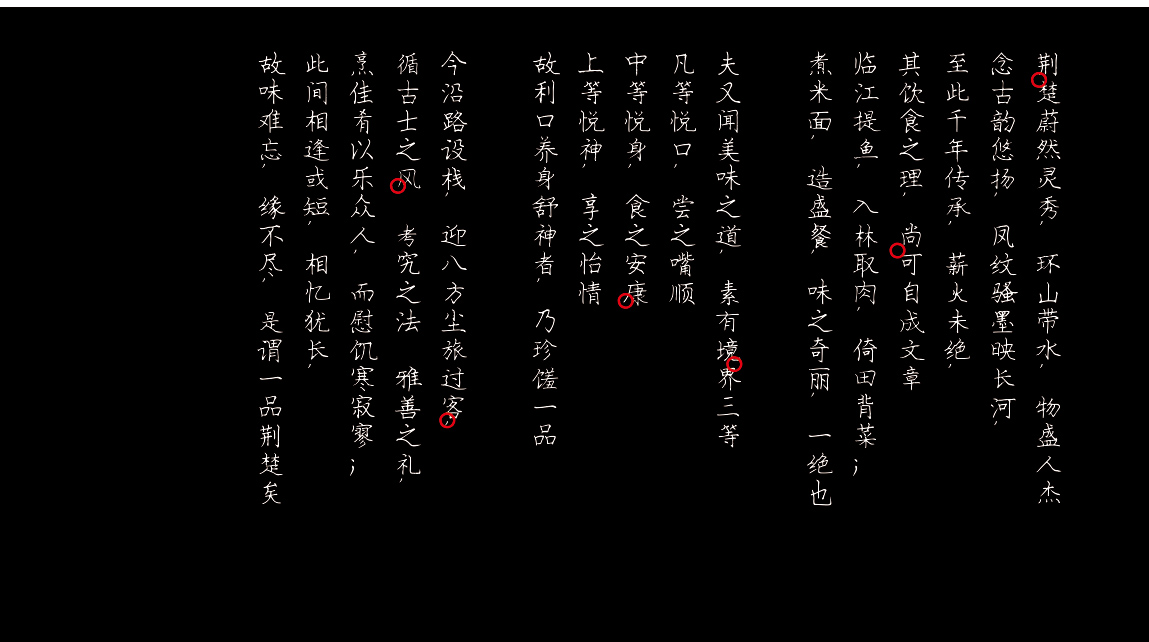 荆楚蔚然灵秀，环山带水，物盛人杰
念古韵悠扬，凤纹骚墨映长河，
至此千年传承，薪火未绝，
其饮食之理，尚可自成文章
临江提鱼，入林取肉，倚田背菜；
煮米面，造盛餐，味之奇丽，一绝也
夫又闻美味之道，素有境界三等
凡等悦口，尝之嘴顺
中等悦身，食之安康
上等悦神，享之怡情
故利口养身舒神者，乃珍馐一品
今沿路设栈，迎八方尘旅过客，
循古士之风 考究之法 雅善之礼，
烹佳肴以乐众人，而慰饥寒寂寥；
此间相逢或短，相忆犹长，
故味难忘，缘不尽，是谓一品荆楚矣